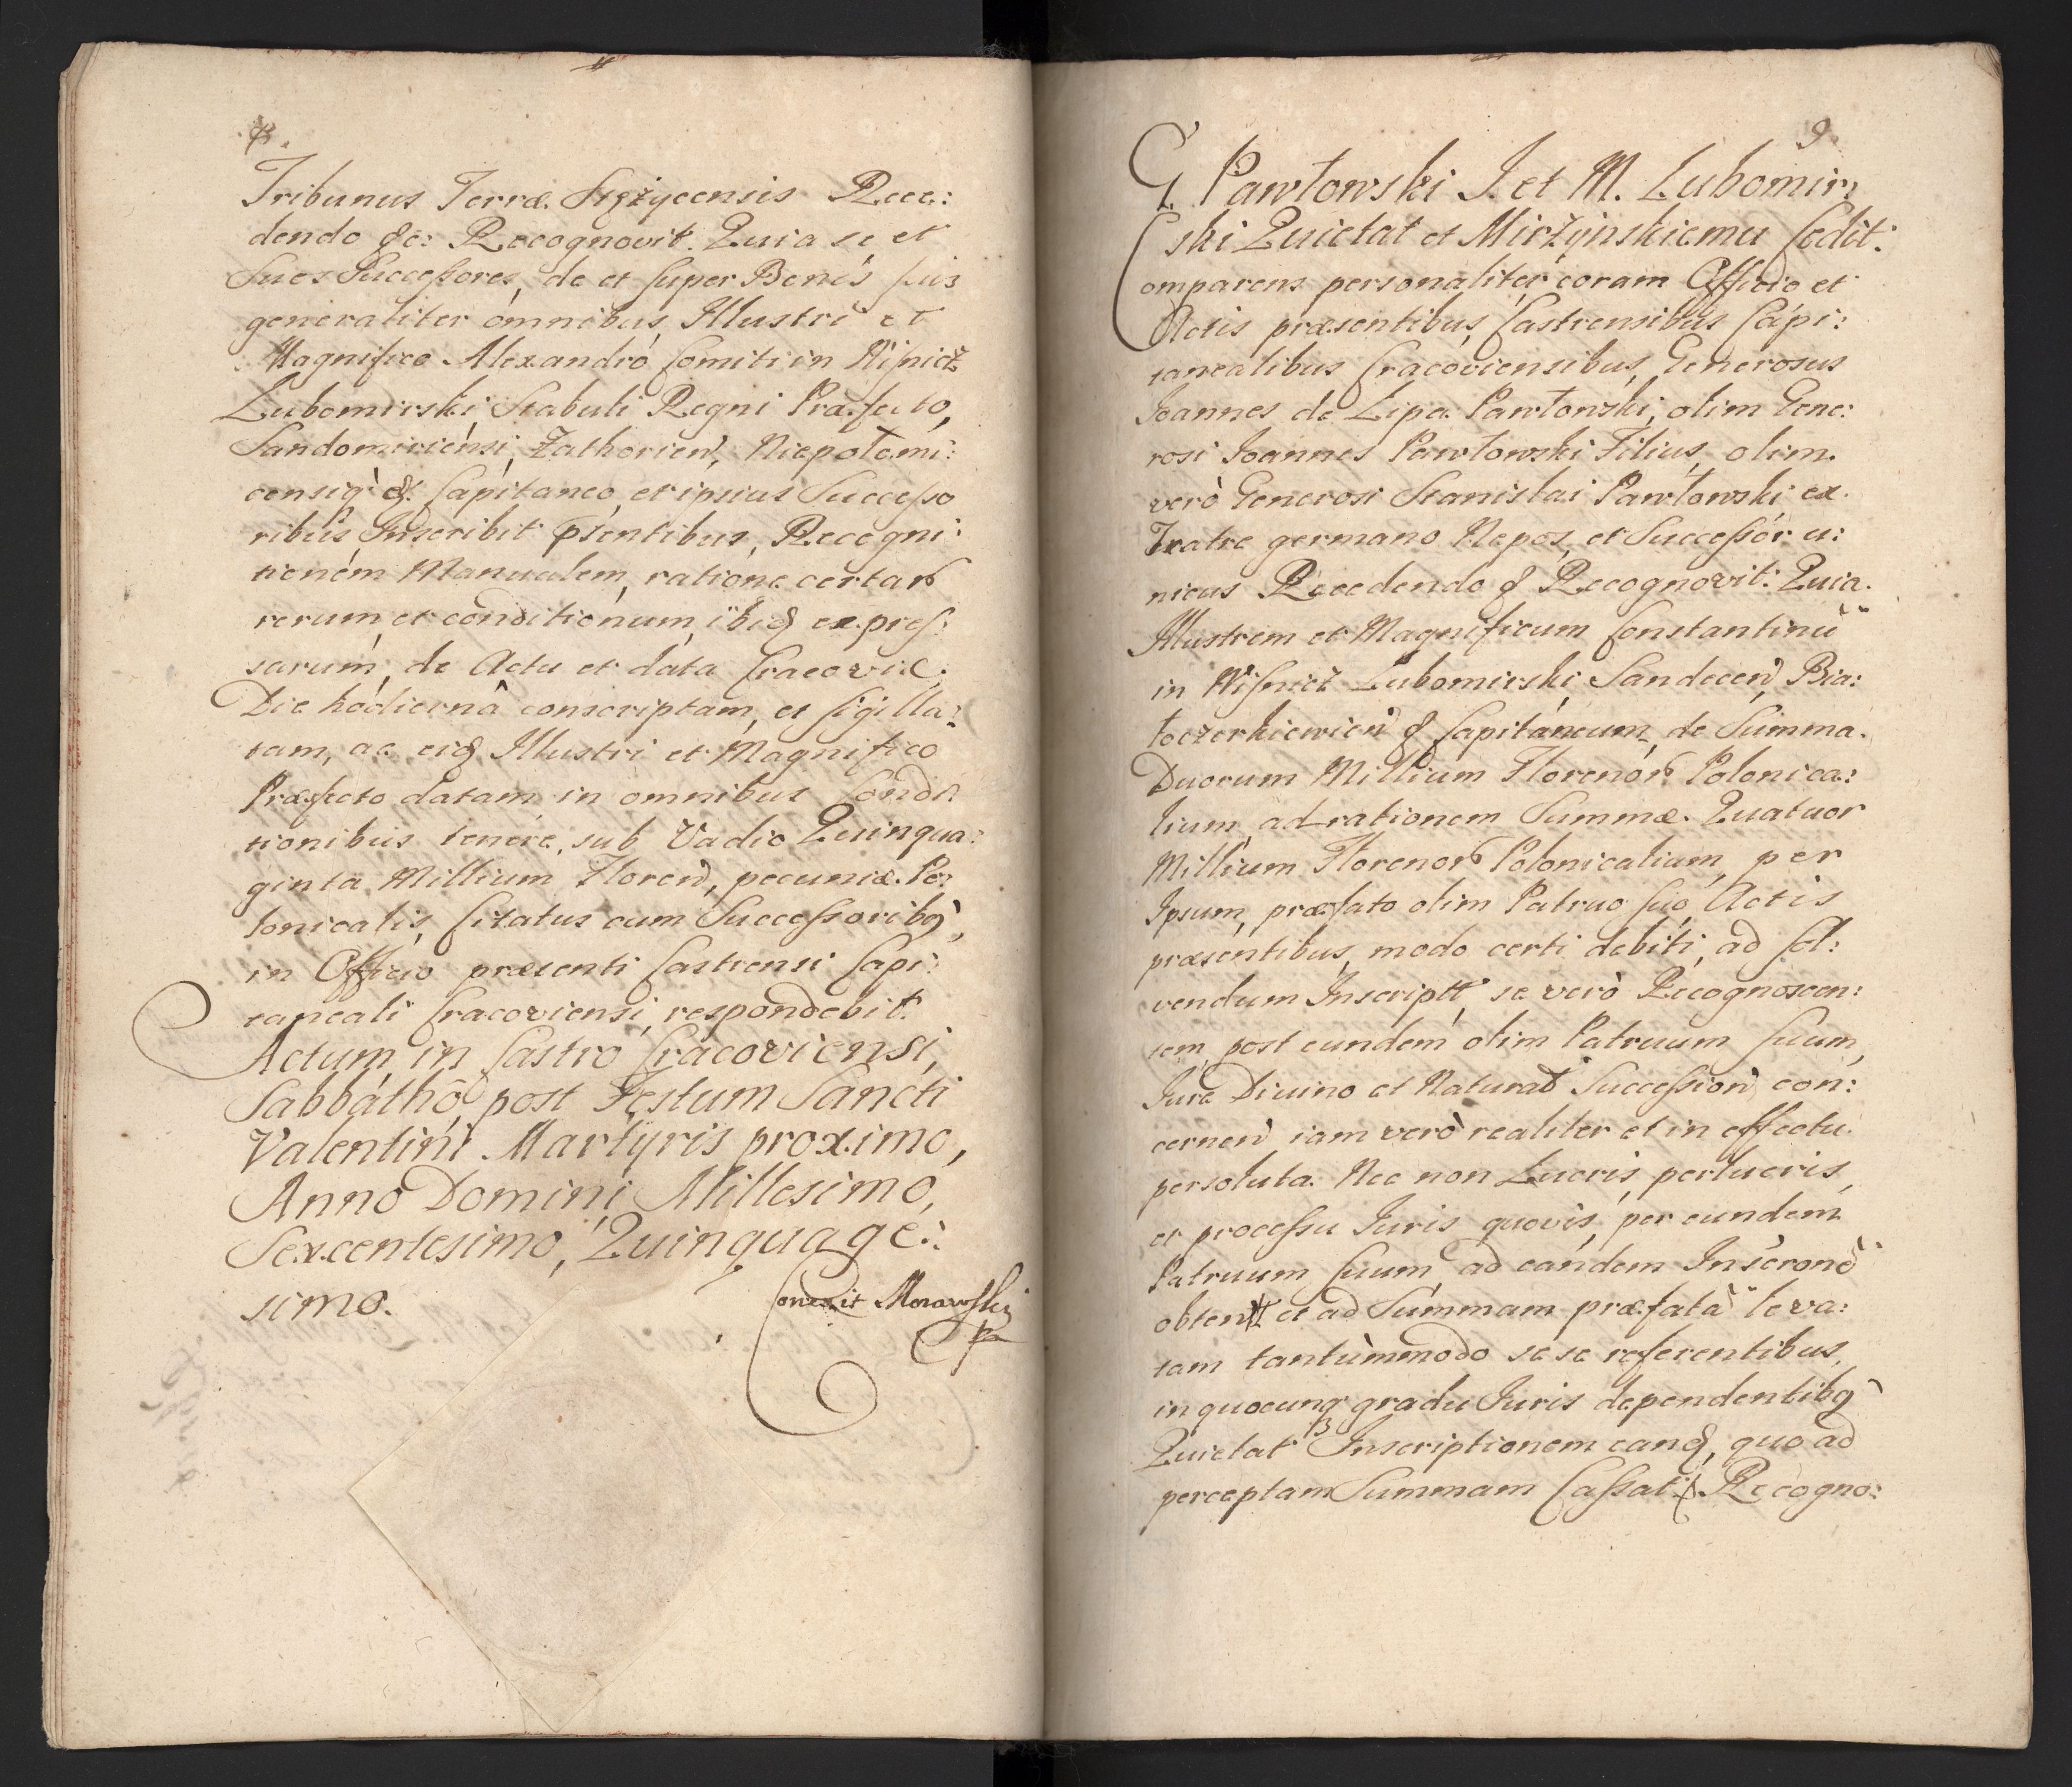 8.
Tribunus Terræ Stężycensis Rece:
dendo &c: Recognovit. Quia se et
Suos Successores, de et super Bonis suis
generaliter omnibus, Illustri et
Magnifico Alexandro Comiti in Wisnicz
Lubomirski, Stabuli Regni Præfecto,
Sandomiriensi, Zathorien, Niepołomi:
censiq̀ &. Capitaneo, et ipsius Successo
ribus Inscribit ptentibus, Recogni:
tionem Manualem, ratione certar
rerum, et conditionum, ibid expres:
sarum, de Actu et data Cracoviæ.
Die hodiernâ conscriptam, et sigilla:
tam, ac eid Illustri et Magnifico
Præfecto datam in omnibus Condi
tionibus tenere, sub Vadio Quinqua:
ginta Millium Floren, pecuniæ Po:
lonicalis, Citatus cum Successoribq,
in Officio præsenti Castrensi Capi:
taneali Cracoviensi, respondebit.
Actum in Castro Cracoviensi,
Sabbathô, post Festum Sancti
Valentini Martyris proximo,
Anno Domini Millesimo,
Sexcentesimo, Quinquage:
simo.
Correxit Morawski
9.
G. Pawłowski I. et M. Lubomir:
ski Quietat et Mirżÿnskiemu Cedit:
Comparens personaliter coram Officio et
Actis præsentibus, Castrensibus Capi:
tanealibus Cracoviensibus, Generosus
Joannes de Lipa Pawłowski, olim Gene:
rosi Joannes Pawłowski Filius, olim
verò Generosi Stanislai Pawłowski ex
Fratre germano Nepos, et Successor u:
nicus Recedendo & Recognovit: Quia
Illustrem et Magnificum Constantinū
in Wisnicz Lubomirski, Sandecen, Bia:
łoczerkiewien & Capitaneum, de Summa
Duorum Millium Florenor Polonica:
lium, ad rationem Summæ Quatuor
Millium Florenor Polonicalium, per
Ipsum, præfato olim Patruo suo, Actis
præsentibus, modo certi debiti, ad sol:
vendum Inscriptt, se verò Recognoscen:
tem, post eundem olim Patruum suum,
Jure Divino et Natural Succession, con:
cernen, iam verò realiter et in effectu
persoluta. Nec non Lucris, perlucris,
et processu Juris quovis, per eundem
Patruum suum, ad eandem Inscronē
obtent et ad Summam præfatā leva:
tam tantùmmodo sese referentibus,
in quocunq gradu Juris dependentibq
Quietat Inscriptionem eand, quo ad
perceptam Summam Cassat: Recogno: